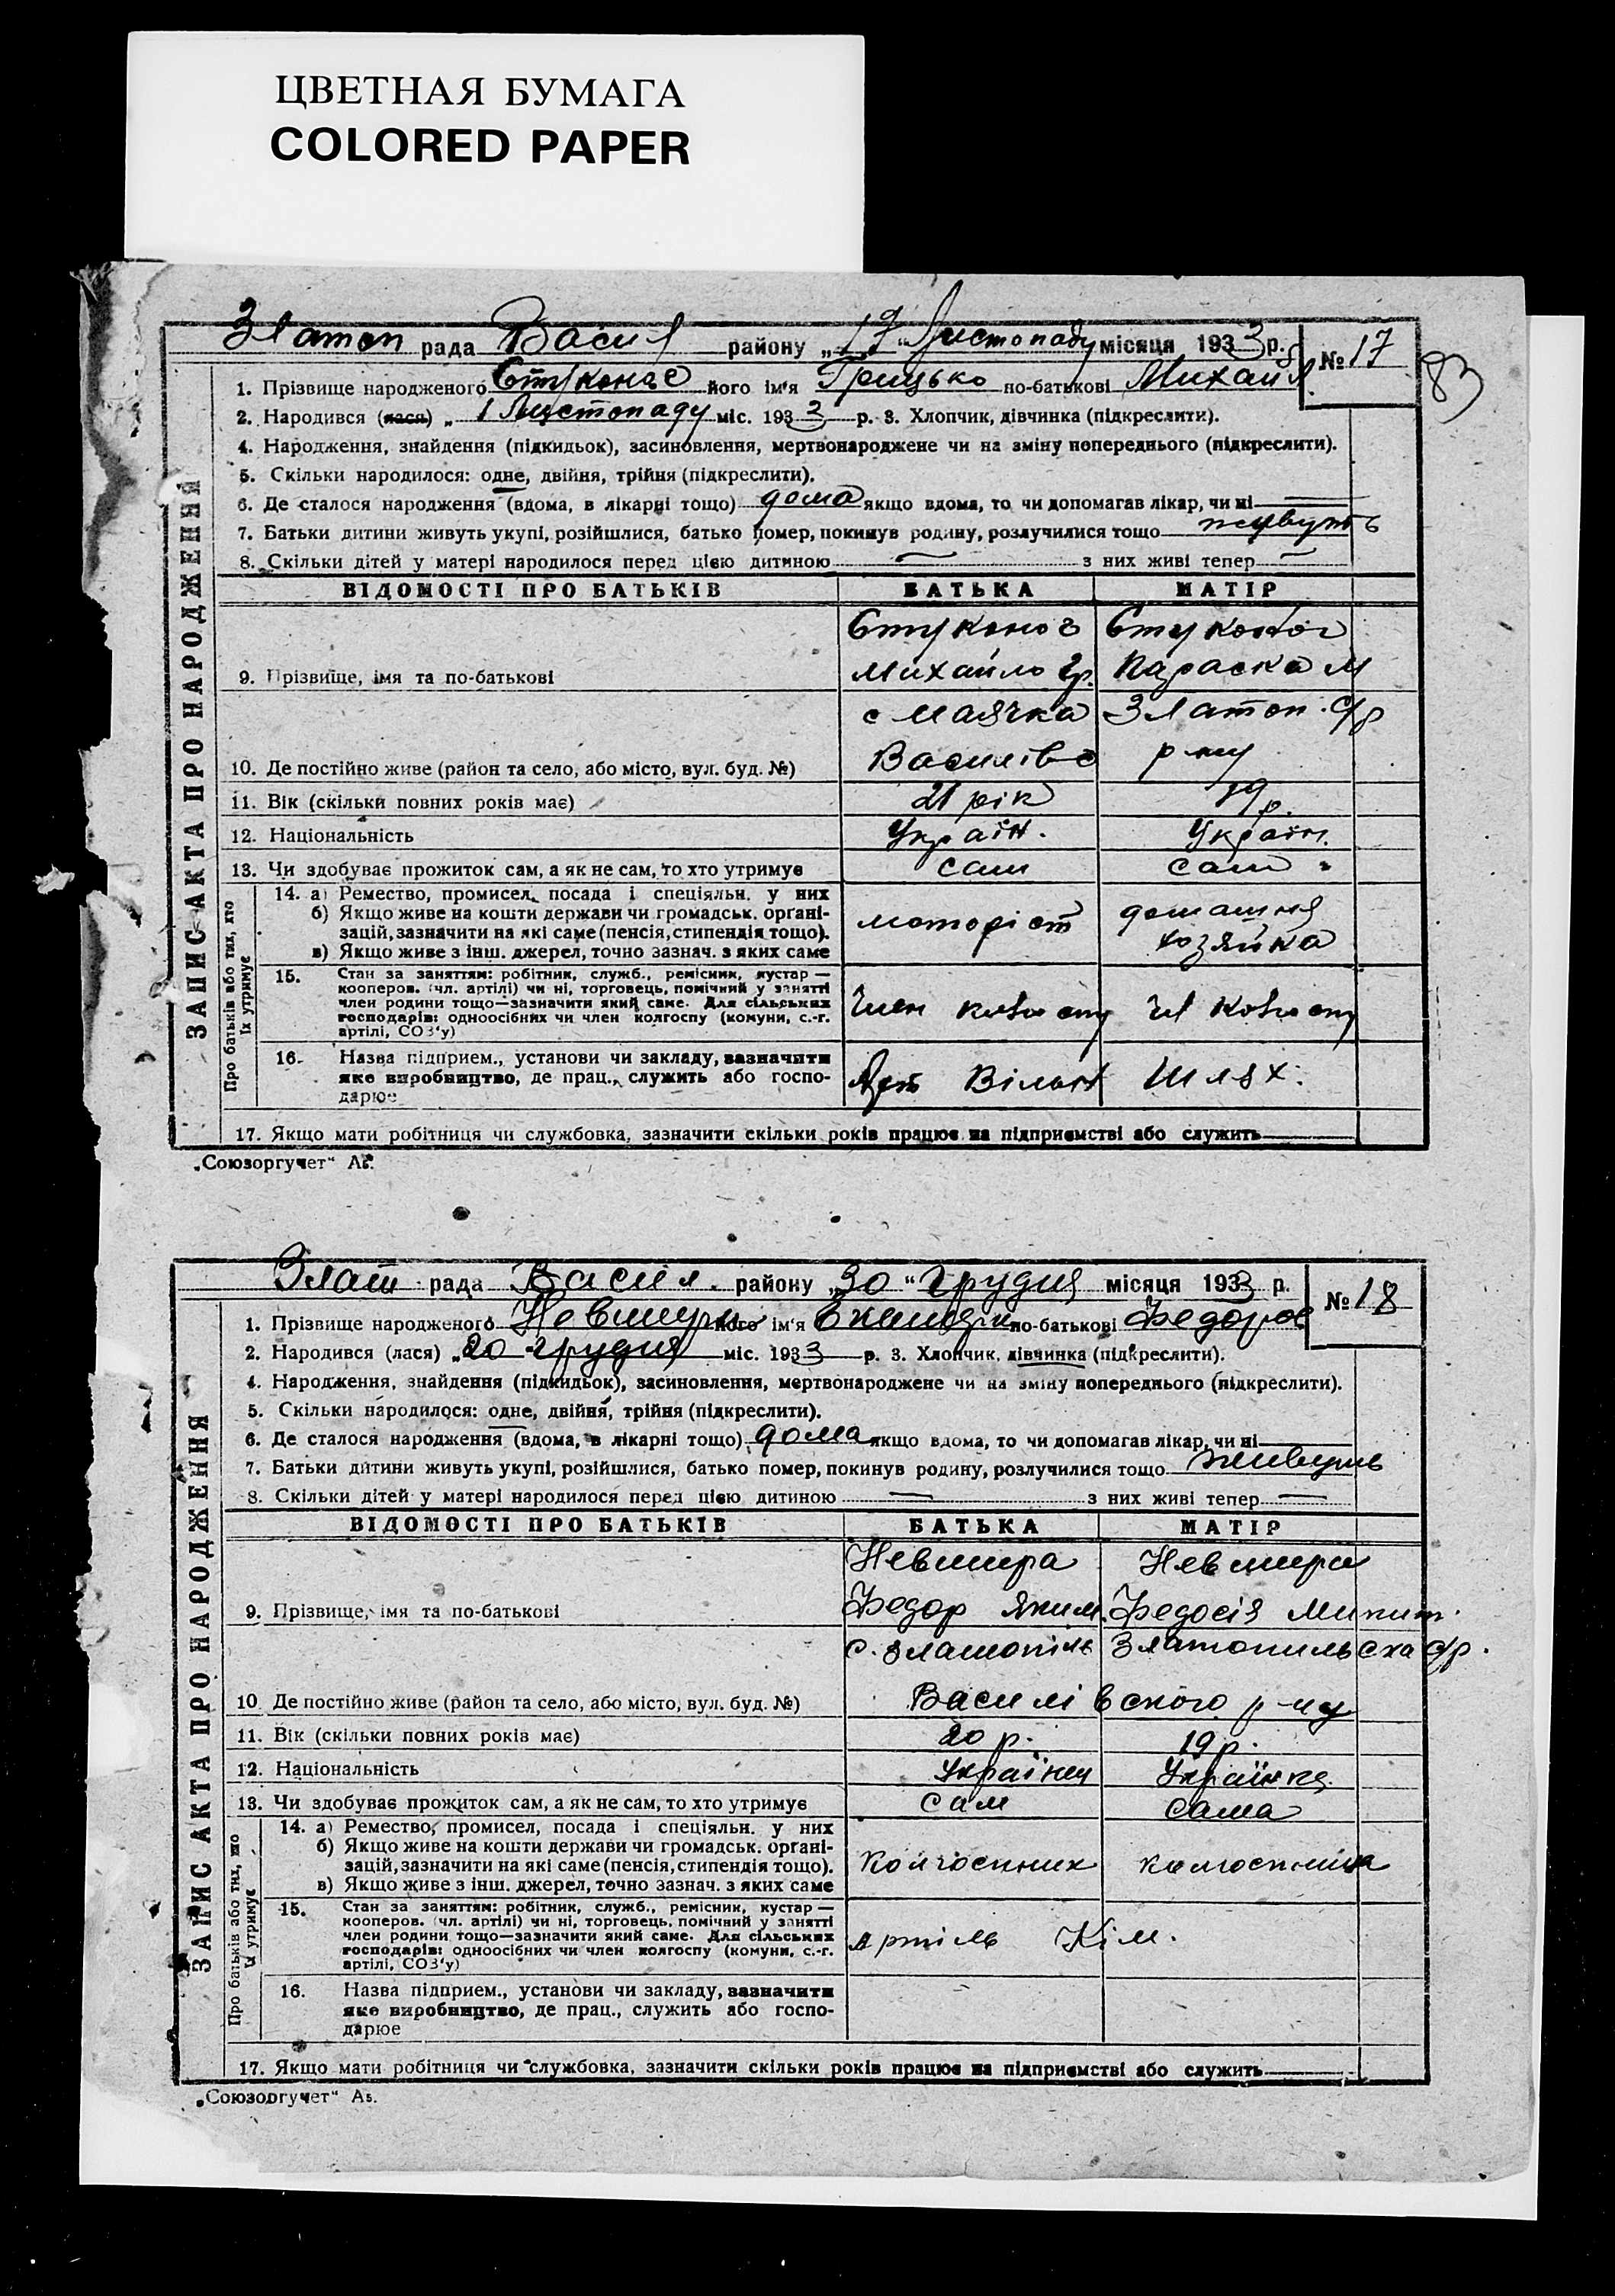 ЦВЕТНАЯ БУМАГА
COLORED PAPER
Златоп рада Васил району „17“ Листопаду місяця 1933 р. № 17
83
1. Прізвище народженого його ім'я Грицько по-батькові Михайл
2. Народився (лася) „ 1 Листопаду міс. 1933 р. 3. Хлопчик, дівчинка (підкреслити).
4. Народження, знайдення (підкидьок), засиновлення, мертвонароджене чи на зміну попереднього (підкреслити).
5. Скільки народилося: одне, двійня, трійня (підкреслити).
6. Де сталося народження (вдома, в лікарні тощо) дома якщо вдома, то чи допомагав лікар, чи ні
7. Батьки дитини живуть укупі, розійшлися, батько помер, покинув родину, розлучилися тощо живуть
8. Скільки дітей у матері народилося перед цією дитиною — з них живі тепер —
ЗАПИС АКТА ПРО НАРОДЖЕННЯ
ВІДОМОСТІ ПРО БАТЬКІВ БАТЬКА МАТІР
9. Прізвище, імя та по-батькові Михайло Гр. Параска М
с Маячка Златоп. с/р
10. Де постійно живе (район та село, або місто, вул. буд. №) Василівс р-ну
11. Вік (скільки повних років має) 21 рік 19 р.
12. Національність Україн. Україн.
13. Чи здобуває прожиток сам, а як не сам, то хто утримує сам сам
Про батьків або тих, хто їх утримує
14. а) Ремество, промисел, посада і спеціяльн. у них
б) Якщо живе на кошти держави чи громадськ. органі-
зацій, зазначити на які саме (пенсія, стипендія тощо).
в) Якщо живе з інш. джерел, точно зазнач. з яких саме
моторіст домашня
хозяйка
15. Стан за заняттям: робітник, служб., ремісник, кустар —
кооперов. (чл. артілі) чи ні, торговець, помічний у занятті
член родини тощо—зазначити який саме. Для сільських
господарів: одноосібних чи член колгоспу (комуни, с.-г.
артілі, СОЗ'у)
Член колгоспу чл колгоспу
16. Назва підприєм., установи чи закладу, зазначити
яке виробництво, де прац., служить або госпо-
дарює
Арт Вільн Шлях.
17. Якщо мати робітниця чи службовка, зазначити скільки років працює на підприємстві або служить
„Союзоргучет“ А5.
Злат рада Васил. району „30“ Грудня місяця 1933 р. № 18
1. Прізвище народженого його ім'я по-батькові Федоров
2. Народився (лася) „20 грудня міс. 1933 р. 3. Хлопчик, дівчинка (підкреслити).
4. Народження, знайдення (підкидьок), засиновлення, мертвонароджене чи на зміну попереднього (підкреслити).
5. Скільки народилося: одне, двійня, трійня (підкреслити).
6. Де сталося народження (вдома, в лікарні тощо) дома якщо вдома, то чи допомагав лікар, чи ні
7. Батьки дитини живуть укупі, розійшлися, батько помер, покинув родину, розлучилися тощо живуть
8. Скільки дітей у матері народилося перед цією дитиною — з них живі тепер —
ЗАПИС АКТА ПРО НАРОДЖЕННЯ
ВІДОМОСТІ ПРО БАТЬКІВ БАТЬКА МАТІР
Невмира Невмира
9. Прізвище, імя та по-батькові Федор Яким. Федосія Микит.
с. Златопіль Златопильска с/р.
10 Де постійно живе (район та село, або місто, вул. буд. №) Василівского р-ну
11. Вік (скільки повних років має) 20 р. 19 р.
12. Національність Українец Українка
13. Чи здобуває прожиток сам, а як не сам, то хто утримує сам сама
Про батьків або тих, хто їх утримує
14. а) Ремество, промисел, посада і спеціяльн. у них
б) Якщо живе на кошти держави чи громадськ. органі-
зацій, зазначити на які саме (пенсія, стипендія тощо).
в) Якщо живе з інш. джерел, точно зазнач. з яких саме
Колгоспник колгоспница
15. Стан за заняттям: робітник, служб., ремісник, кустар —
кооперов. (чл. артілі) чи ні, торговець, помічний у занятті
член родини тощо—зазначити який саме. Для сільських
господарів: одноосібних чи член колгоспу (комуни, с.-г.
артілі, СОЗ'у)
Артіль Кім.
16. Назва підприєм., установи чи закладу, зазначити
яке виробництво, де прац., служить або госпо-
дарює
17. Якщо мати робітниця чи службовка, зазначити скільки років працює на підприємстві або служить
„Союзоргучет“ А5.